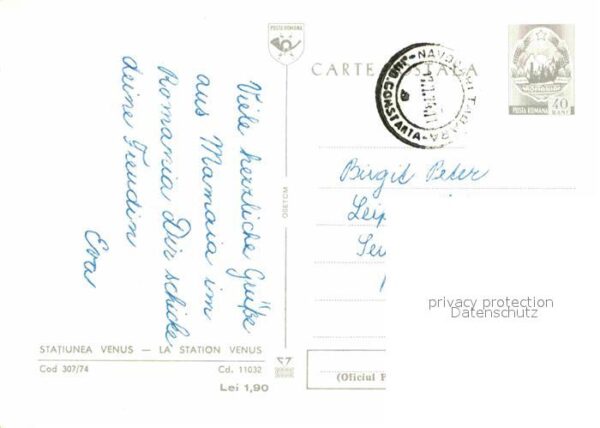 POSTA ROMANA
CARTE POSTALA
POSTA ROMANA
40
BANI
NAVODARI TABARA
JUD. CONSTANTA
Viele herzliche Grüße
aus Mamaia im
Romania Dir schicke
deine Freudin
Eva
Birgit Peter
Leip
STAȚIUNEA VENUS — LA STATION VENUS
Cod 307/74
Cd. 11032
Lei 1,90
(Oficiul P
privacy protection
Datenschutz